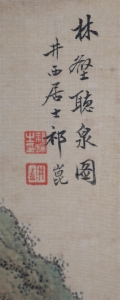 林壑聽泉圖
井西居士祁崑